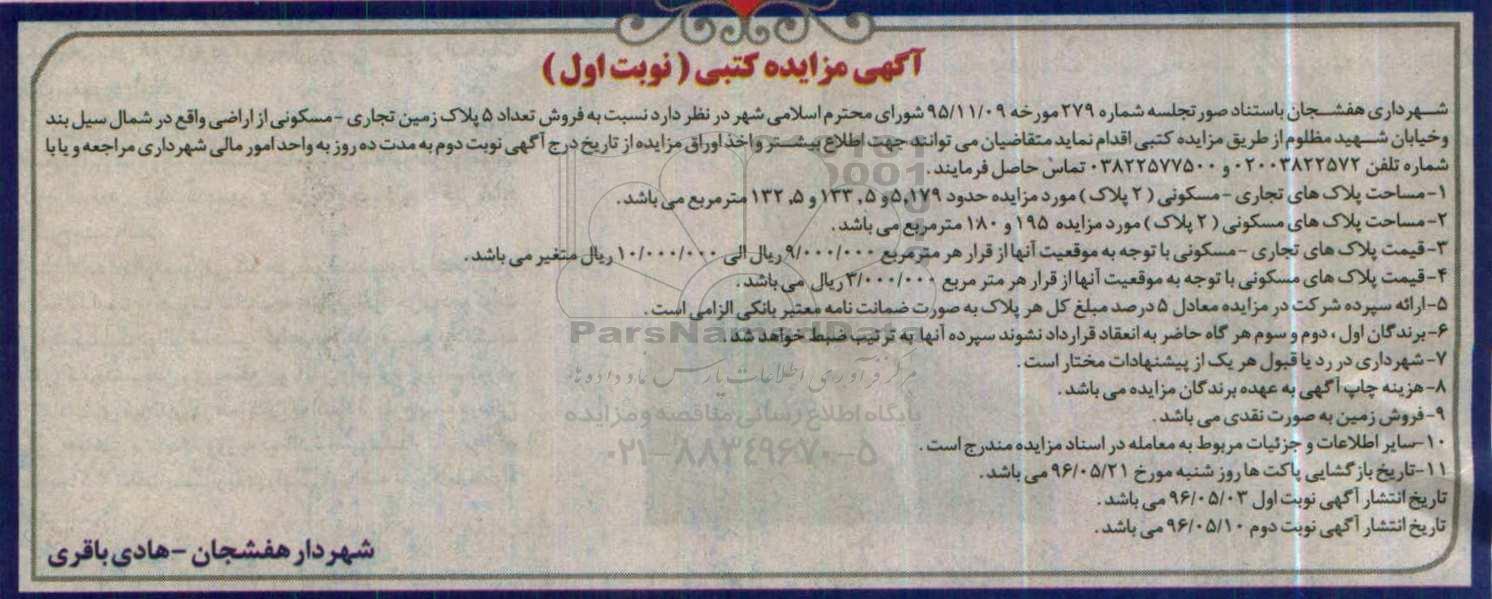 آگهی مزایده کتبی ( نوبت اول )
شهرداری هفشجان باستناد صورتجلسه شماره ۲۷۹ مورخه ۹۵/۱۱/۰۹ شورای محترم اسلامی شهر در نظر دارد نسبت به فروش تعداد ۵ پلاک زمین تجاری - مسکونی از اراضی واقع در شمال سیل بند
وخیابان شهید مظلوم از طریق مزایده کتبی اقدام نماید متقاضیان می توانند جهت اطلاع بیشتر و اخذ اوراق مزایده از تاریخ درج آگهی نوبت دوم به مدت ده روز به واحد امور مالی شهرداری مراجعه و یا با
شماره تلفن ۰۲۰۰۳۸۲۲۵۷۲ و ۰۳۸۲۲۵۷۷۵۰۰ تماس حاصل فرمایند .
۱- مساحت پلاک های تجاری - مسکونی ( ۲ پلاک ) مورد مزایده حدود ۵,۱۷۹ و ۱۳۳,۵ و ۱۳۲,۵ مترمربع می باشد .
۲- مساحت پلاک های مسکونی ( ۲ پلاک ) مورد مزایده ۱۹۵ و ۱۸۰ مترمربع می باشد .
۳- قیمت پلاک های تجاری - مسکونی با توجه به موقعیت آنها از قرار هر مترمربع ۹/۰۰۰/۰۰۰ ریال الی ۱۰/۰۰۰/۰۰۰ ریال متغیر می باشد .
۴- قیمت پلاک های مسکونی با توجه به موقعیت آنها از قرار هر متر مربع ۳/۰۰۰/۰۰۰ ریال می باشد .
۵- ارائه سپرده شرکت در مزایده معادل ۵ درصد مبلغ کل هر پلاک به صورت ضمانت نامه معتبر بانکی الزامی است .
۶- برندگان اول ، دوم و سوم هر گاه حاضر به انعقاد قرارداد نشوند سپرده آنها به ترتیب ضبط خواهد شد .
۷- شهرداری در رد یا قبول هر یک از پیشنهادات مختار است .
۸- هزینه چاپ آگهی به عهده برندگان مزایده می باشد .
۹- فروش زمین به صورت نقدی می باشد .
۱۰- سایر اطلاعات و جزئیات مربوط به معامله در اسناد مزایده مندرج است .
۱۱- تاریخ بازگشایی پاکت ها روز شنبه مورخ ۹۶/۰۵/۲۱ می باشد .
تاریخ انتشار آگهی نوبت اول ۹۶/۰۵/۰۳ می باشد .
تاریخ انتشار آگهی نوبت دوم ۹۶/۰۵/۱۰ می باشد .
شهردار هفشجان - هادی باقری
ParsNamadData
مرکز فرآوری اطلاعات پارس نماد داده ها
پایگاه اطلاع رسانی مناقصه و مزایده
۰۲۱-۸۸۳۴۹۶۷۰-۵